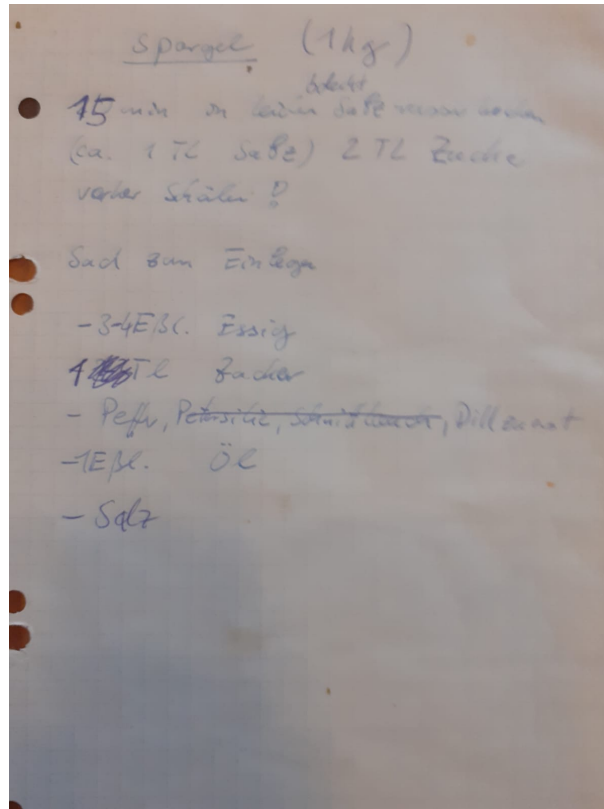 Spargel (1kg)
bedeckt
15 min in Salzwasser kochen
(ca. 1 TL Salz) 2 TL Zucker
vorher schälen!
Sud zum Einlegen
-3-4 Eßl. Essig
1 Tl Zucker
- Peffer, Petersilie, Schnittlauch, Dill
-1 Eßl. Öl
- Salz